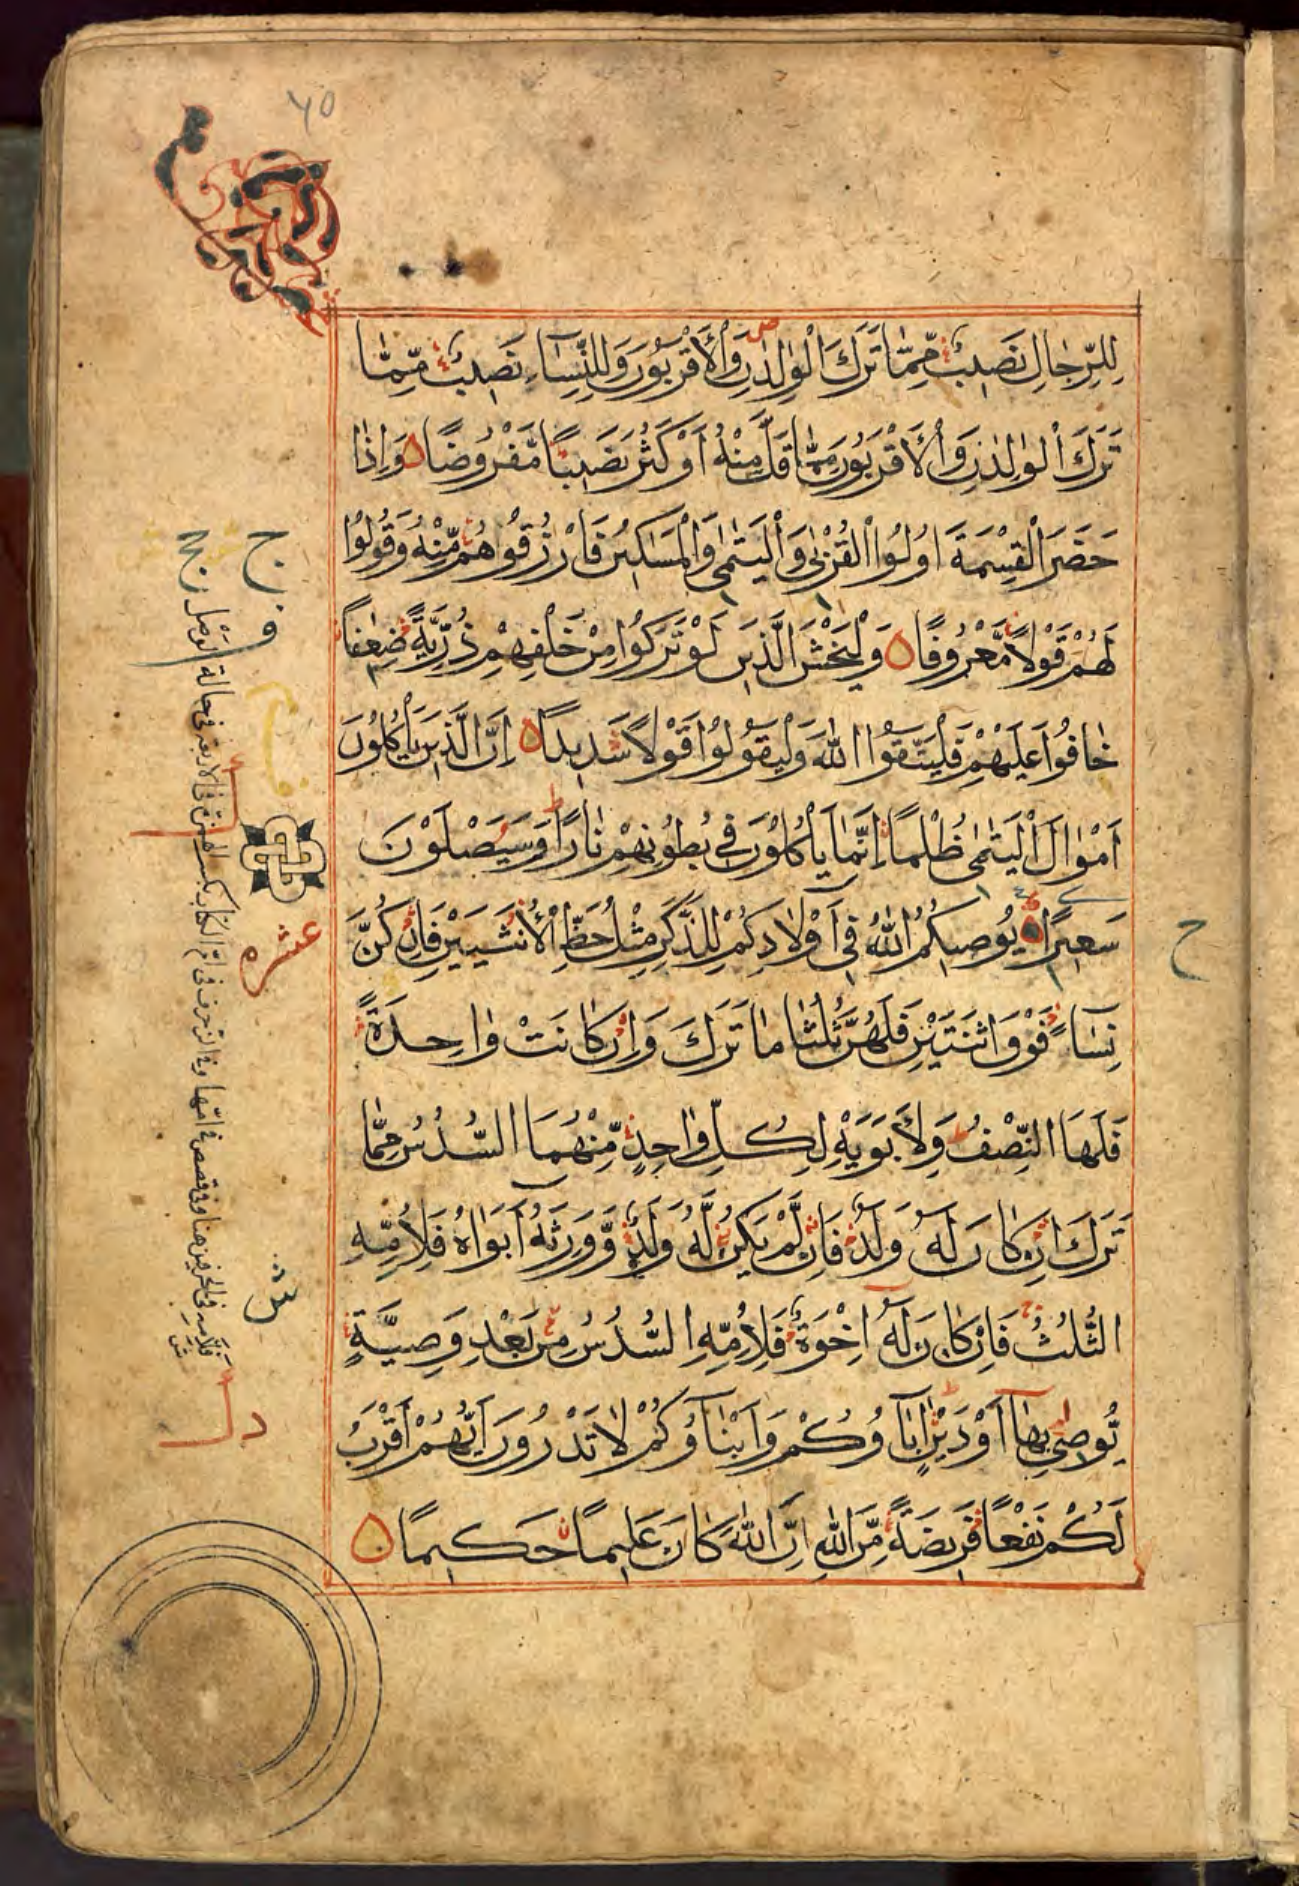 ٦٥
لِلرِّجَالِ نَصِيبٌ مِّمَّا تَرَكَ الْوٰلِدٰنِ وَالْأَقْرَبُونَ وَلِلنِّسَاءِ نَصِيبٌ مِّمَّا
تَرَكَ الْوٰلِدٰنِ وَالْأَقْرَبُونَ مِمَّا قَلَّ مِنْهُ أَوْ كَثُرَ نَصِيبًا مَّفْرُوضًا وَإِذَا
حَضَرَ الْقِسْمَةَ اُولُوا الْقُرْبٰى وَالْيَتٰمٰى وَالْمَسَاكِينُ فَارْزُقُوهُم مِّنْهُ وَقُولُوا
لَهُمْ قَوْلًا مَّعْرُوفًا وَلْيَخْشَ الَّذِينَ لَوْ تَرَكُوا مِنْ خَلْفِهِمْ ذُرِّيَّةً ضِعٰفًا
خَافُوا عَلَيْهِمْ فَلْيَتَّقُوا اللّٰهَ وَلْيَقُولُوا قَوْلًا سَدِيدًا اِنَّ الَّذِينَ يَاْكُلُونَ
اَمْوَالَ الْيَتٰمٰى ظُلْمًا اِنَّمَا يَاْكُلُونَ فِي بُطُونِهِمْ نَارًا وَسَيَصْلَوْنَ
سَعِيرًا يُوصِيكُمُ اللّٰهُ فِي اَوْلَادِكُمْ لِلذَّكَرِ مِثْلُ حَظِّ الْأُنْثَيَيْنِ فَاِنْ كُنَّ
نِسَاءً فَوْقَ اثْنَتَيْنِ فَلَهُنَّ ثُلُثَا مَا تَرَكَ وَاِنْ كَانَتْ وَاحِدَةً
فَلَهَا النِّصْفُ وَلِأَبَوَيْهِ لِكُلِّ وَاحِدٍ مِّنْهُمَا السُّدُسُ مِمَّا
تَرَكَ اِنْ كَانَ لَهُ وَلَدٌ فَاِن لَّمْ يَكُن لَّهُ وَلَدٌ وَّوَرِثَهُ اَبَوَاهُ فَلِاُمِّهِ
الثُّلُثُ فَاِنْ كَانَ لَهُ اِخْوَةٌ فَلِاُمِّهِ السُّدُسُ مِن بَعْدِ وَصِيَّةٍ
يُوصِي بِهَا اَوْ دَيْنٍ اٰبَاؤُكُمْ وَاَبْنَاؤُكُمْ لَا تَدْرُونَ اَيُّهُمْ اَقْرَبُ
لَكُمْ نَفْعًا فَرِيضَةً مِّنَ اللّٰهِ اِنَّ اللّٰهَ كَانَ عَلِيمًا حَكِيمًا
ح
عشره
ش